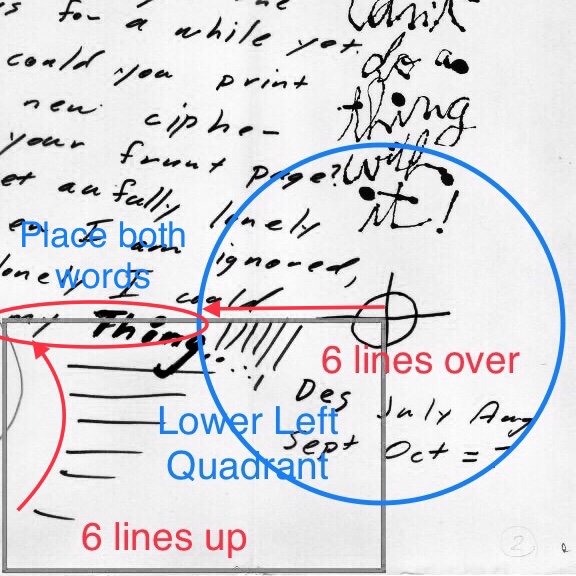 s for a while yet.
could you print
new cipher-
your frunt page?
et awfully lonely
en I am ignored,
lonely I could
my Thing
Can't
do a
thing
with
it!
Place both
words
6 lines over
Lower Left
Quadrant
6 lines up
Des July Aug
Sept Oct = 7
2